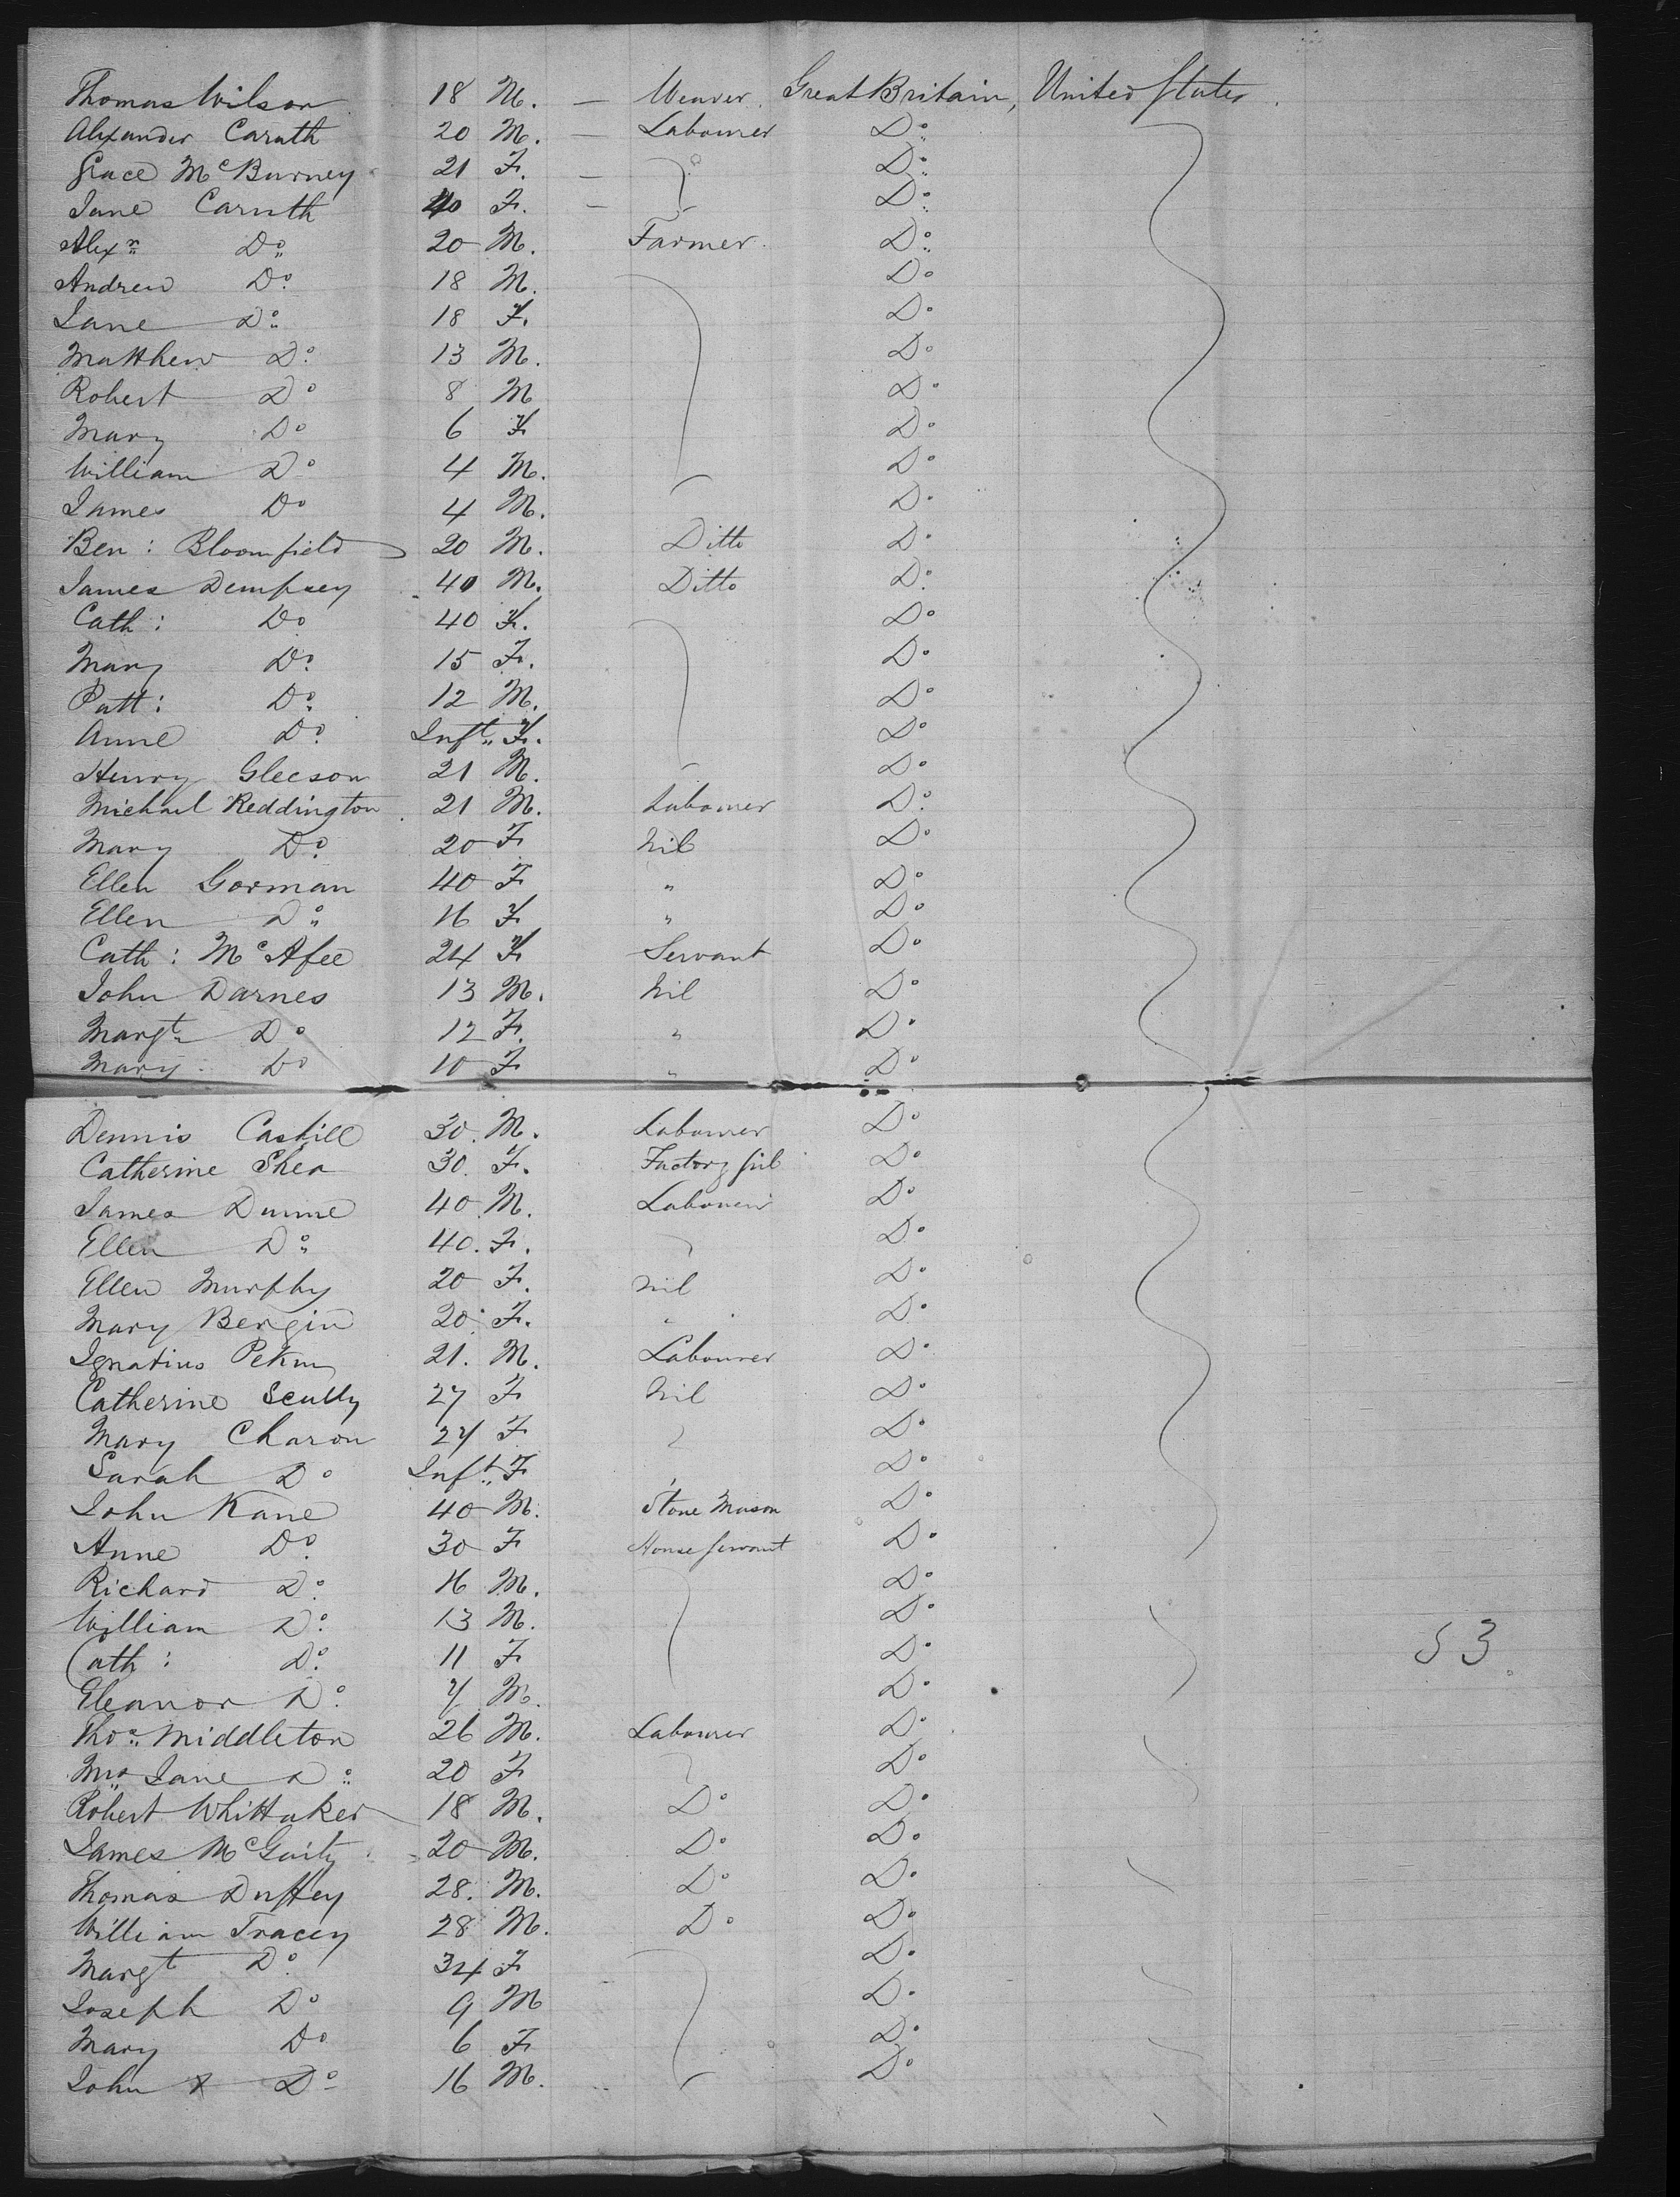 Thomas Wilson 18 M. — Weaver. Great Britain, United States.
Alexander Caruth 20 M. — Labourer Do
Grace McBurney 21 F. — Do
Jane Caruth 40 F. — Do
Alexr Do 20 M. Farmer Do
Andrew Do 18 M. Do
Jane Do 18 F. Do
Matthew Do 13 M. Do
Robert Do 8 M Do
Mary Do 6 F Do
William Do 4 M. Do
James Do 4 M. Do
Ben: Bloomfield 20 M. Ditto Do
James Dempsey 40 M. Ditto Do
Cath: Do 40 F. Do
Mary Do 15 F. Do
Patt: Do 12 M. Do
Anne Do Inft F. Do
Henry Gleeson 21 M. Do
Michael Reddington 21 M. Labourer Do
Mary Do 20 F Nil Do
Ellen Gorman 40 F " Do
Ellen Do 16 F " Do
Cath: McAfee 24 F Servant Do
John Darnes 13 M. Nil Do
Margt Do 12 F. " Do
Mary Do 10 F " Do
Dennis Caskill 30. M. Labourer Do
Catherine Shea 30. F. Factory girl Do
James Dunne 40 M. Labourer Do
Ellen Do 40. F. Do
Ellen Murphy 20 F. Nil Do
Mary Bergin 20 F. " Do
Ignatius 21. M. Labourer Do
Catherine Scully 27 F Nil Do
Mary Charon 27 F Do
Sarah Do Inft F Do
John Kane 40 M. Stone Mason Do
Anne Do 30 F House servant Do
Richard Do 16 M. Do
William Do 13 M. Do
Cath: Do 11 F Do 53
Eleanor Do 7 M. Do
Thos Middleton 26 M. Labourer Do
Mrs Jane Do 20 F Do
Robert Whittaker 18 M. Do Do
James McGuity 20 M. Do Do
Thomas Duffey 28. M. Do Do
William Tracey 28 M. Do Do
Margt Do 34 F Do
Joseph Do 9 M Do
Mary Do 6 F Do
John Do 16 M. Do